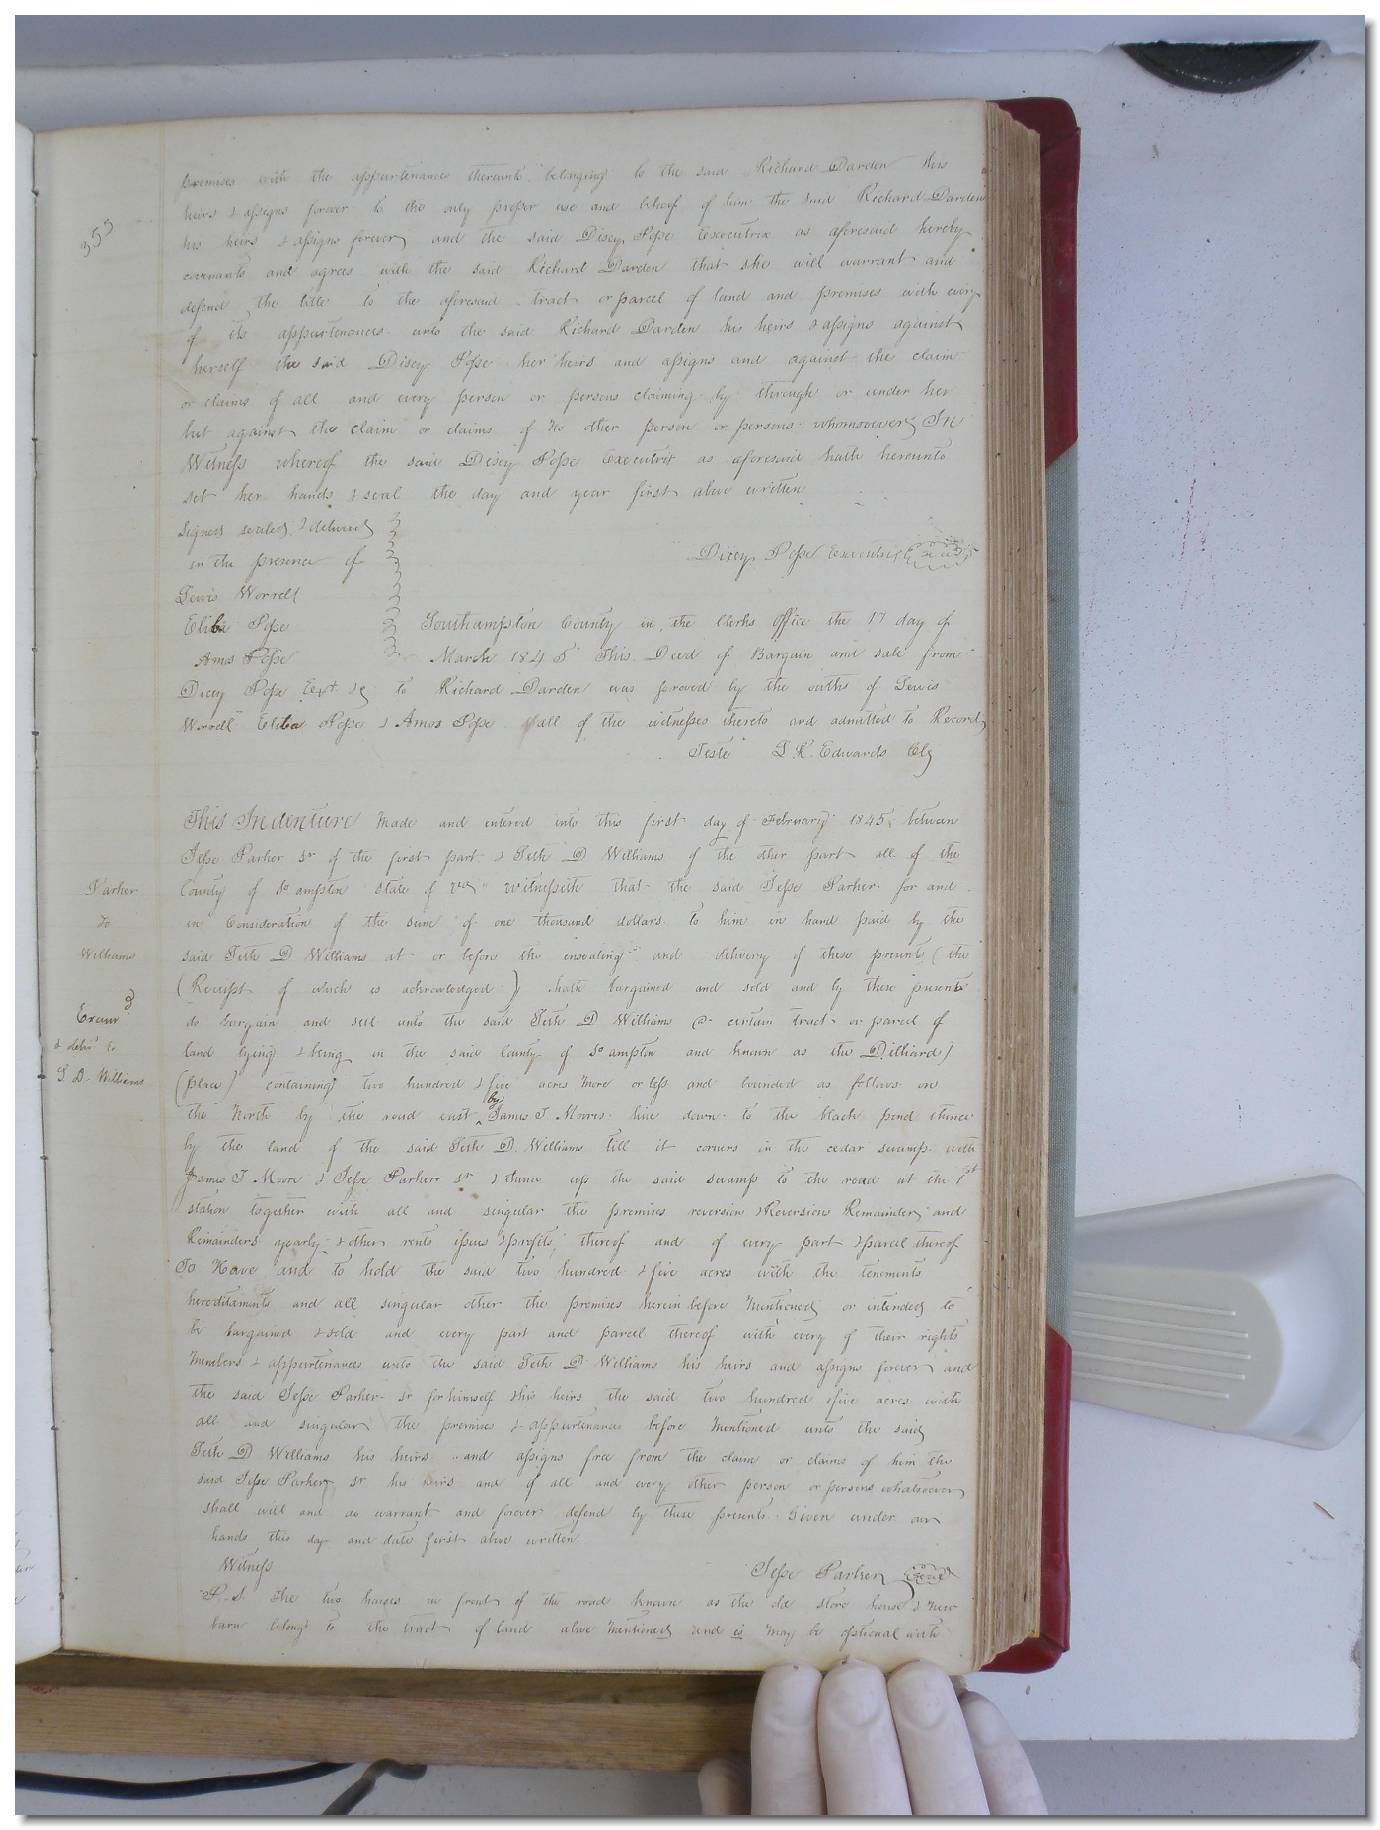 355
premises with the appurtenance thereunto belonging to the said Richard Darden his
heirs & assigns forever to the only proper use and behoof of him the said Richard Darden
his heirs & assigns forever and the said Dicey Pope Executrix as aforesaid hereby
covenants and agrees with the said Richard Darden that she will warrant and
defend the title to the aforesaid tract or parcel of land and premises with every
of its appurtenances unto the said Richard Darden his heirs & assigns against
herself the said Dicey Pope her heirs and assigns and against the claim
or claims of all and every person or persons claiming by through or under her
but against the claim or claims of no other person or persons whomsoever In
Witness whereof the said Dicey Pope Executrix as aforesaid hath hereunto
set her hands & seal the day and year first above written
Signed sealed & delivered
in the presence of
Dicey Pope Executrix Seal
Lewis Worrell
Eliba Pope
Southampton County in the Clerks Office the 17 day of
Amos Pope
March 1845 This Deed of Bargain and sale from
Dicey Pope Ext &c to Richard Darden was proved by the oaths of Lewis
Worrell Eliba Pope & Amos Pope all of the witnesses thereto and admitted to Record
Teste L R Edwards Clk
This Indenture Made and entered into this first day of February 1845 between
Jesse Parker Sr of the first part & Seth D Williams of the other part all of the
Parker
County of So ampton state of Va witnesseth that the said Jesse Parker for and
to
in Consideration of the sum of one thousand dollars to him in hand paid by the
Williams
said Seth D Williams at or before the ensealing and delivery of these presents (the
(Receipt of which is acknowledged) hath bargained and sold and by these presents
Examd
do bargain and sell unto the said Seth D Williams a certain tract or parcel of
& deld to
land lying & being in the said County of So ampton and known as the Dilliard)
S. D. Williams
(place) containing two hundred & five acres more or less and bounded as follows on
the North by the road east by James T. Moores line down to the black pond thence
by the land of the said Seth D. Williams till it corners in the cedar swamp with
James T Moore & Jesse Parker Sr & thence up the said swamp to the road at the 1st
station together with all and singular the premises reversion & Reversions Remainder and
Remainders yearly & other rents issues & profits thereof and of every part & parcel thereof
To Have and to hold the said two hundred & five acres with the tenements
hereditaments and all singular other the premises herein before Mentioned or intended to
be bargained & sold and every part and parcel thereof with every of their rights
Members & appurtenances unto the said Seth D Williams his heirs and assigns forever and
the said Jesse Parker Sr for himself & his heirs the said two hundred & five acres with
all and singular the premises & appurtenances before Mentioned unto the said
Seth D Williams his heirs and assigns free from the claim or claims of him the
said Jesse Parker Sr his heirs and of all and every other person or persons whatsoever
shall will and do warrant and forever defend by these presents. Given under our
hands this day and date first above written
Witness
Jesse Parker Seal
P.S. The two houses in front of the road known as the old store house & New
barn belongs to the tract of land above Mentioned and is May be optional with